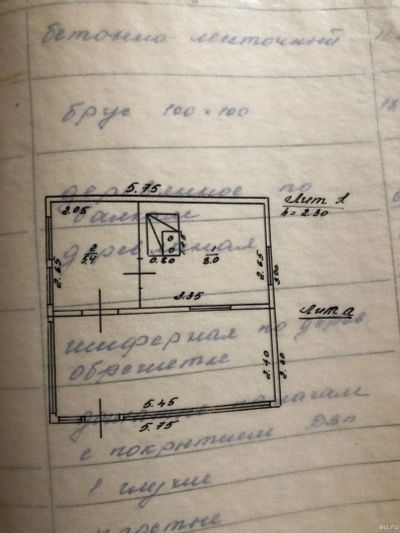 бетонно ленточный
брус 100×100
5.75
Лит А
h = 2.30
2.05
деревянное по
балкам
2
5,4
0.80
1
8.0
2.65
2.65
3.00
3.35
Лит а
шиферная по дерев
обрешетке
2.40
2.60
5.45
5.75
с покрытием
1 глухие
простые
au.ru